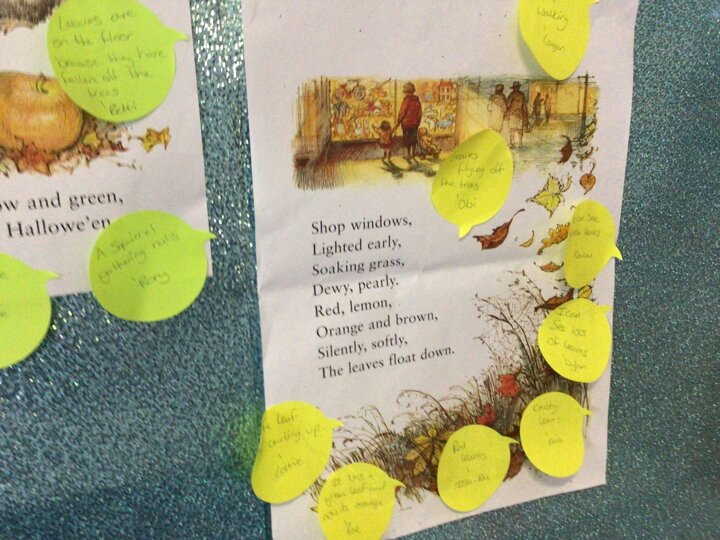 Leaves are
on the floor
because they have
fallen off the
trees
and green,
Hallowe'en
A squirrel
gathering nuts
Walking
Logan
leaves
flying off
the trees
Obi
Shop windows,
Lighted early,
Soaking grass,
Dewy, pearly.
Red, lemon,
Orange and brown,
Silently, softly,
The leaves float down.
can see
leaves
I can
see lots
of leaves
Dylan
Crusty
leaves
Red
leaves
leaf
curling up
Lottie
It was a
green leaf and
now its orange